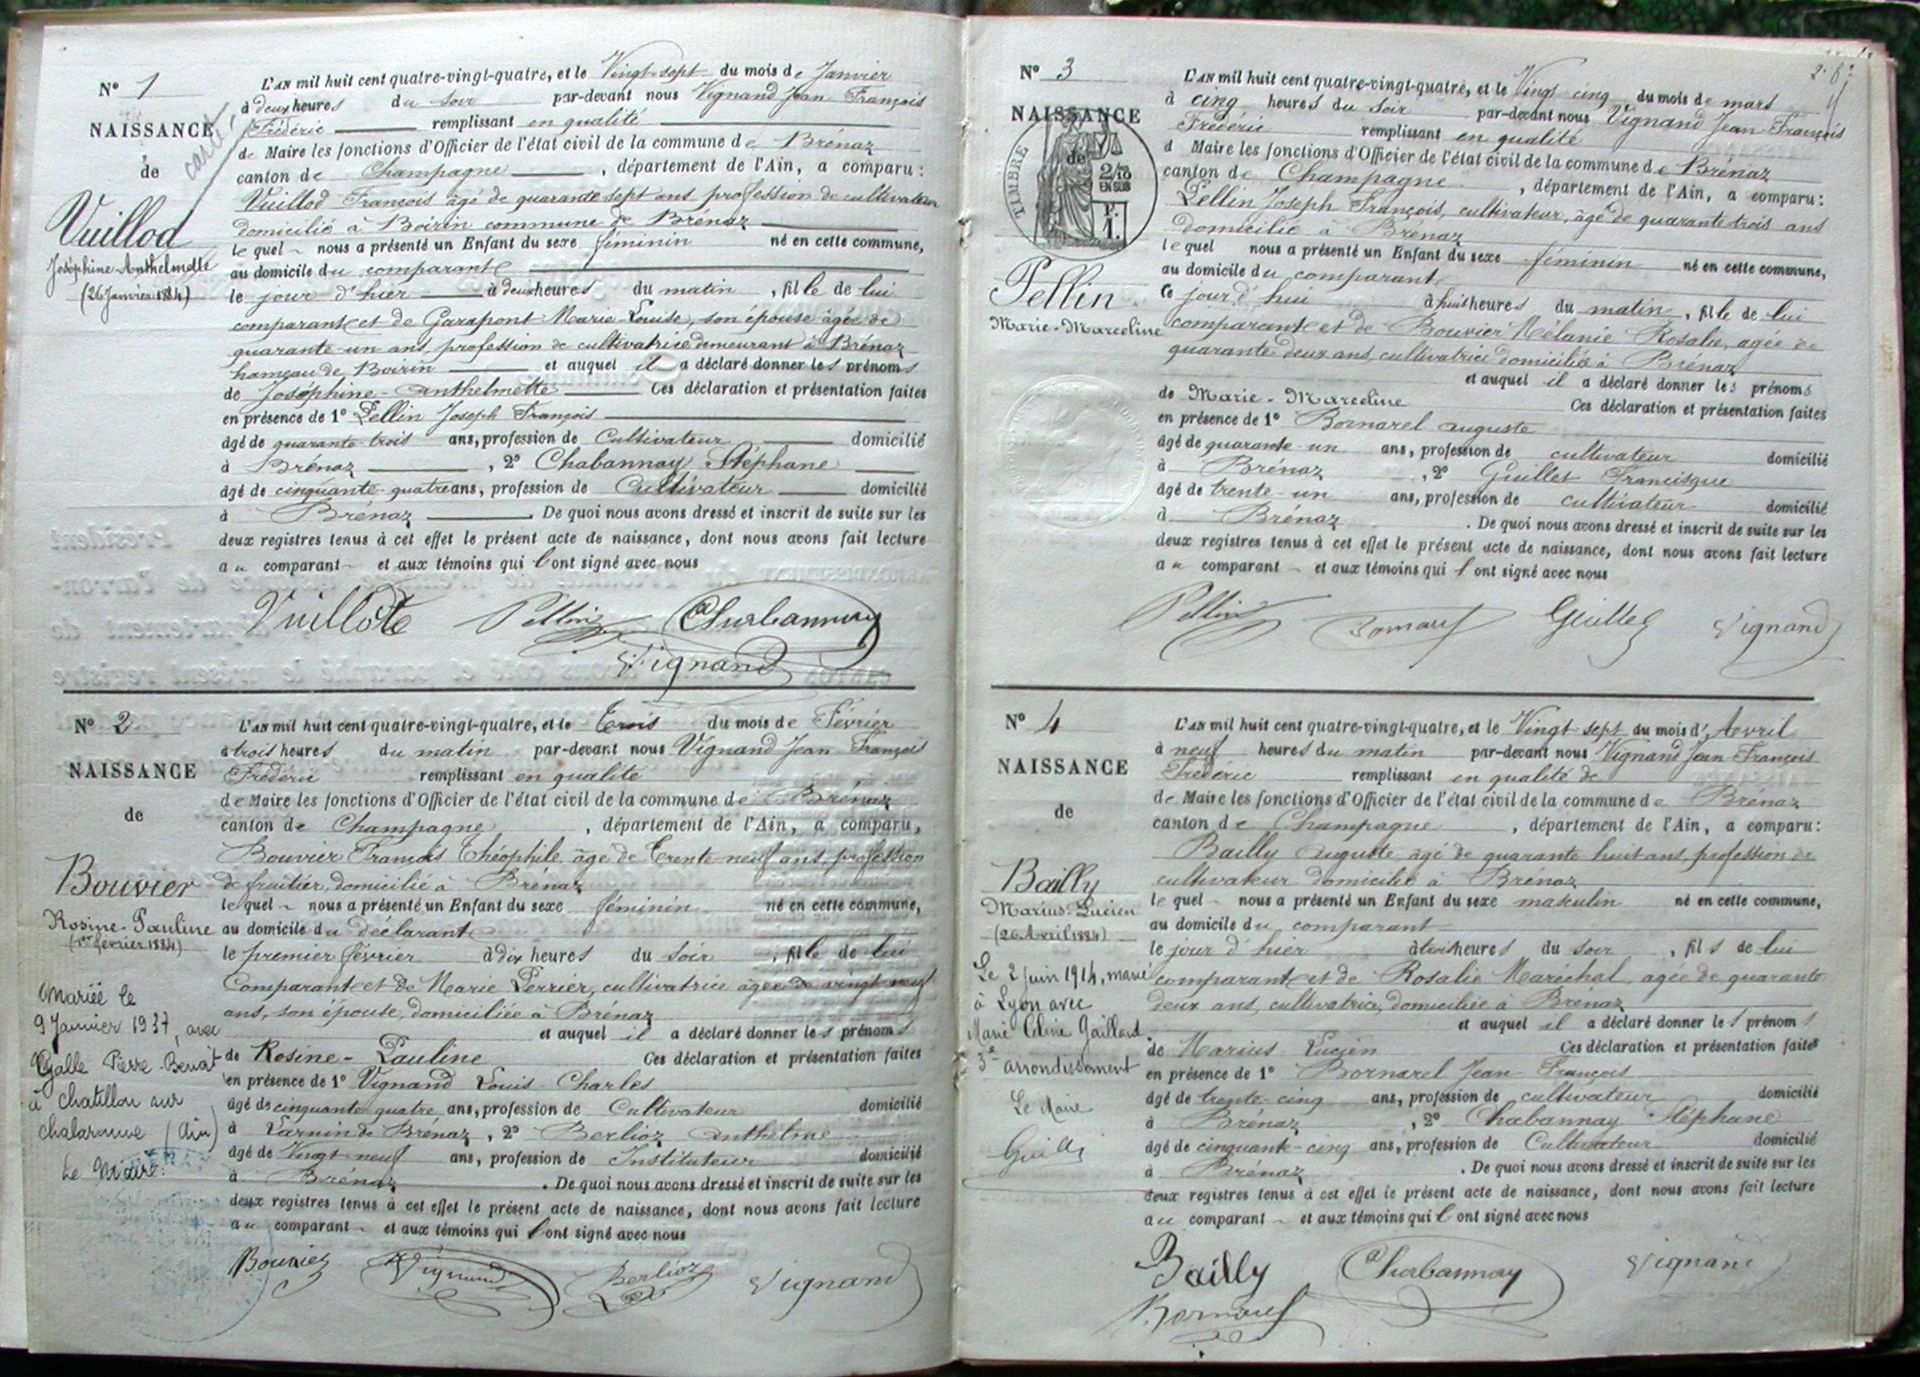 N° 1
NAISSANCE
de
Vuillod
Joséphine-Anthelmette
(26 Janvier 1884)
L'AN mil huit cent quatre-vingt-quatre, et le Vingt-sept du mois de Janvier
à deux heures du soir par-devant nous Vignand Jean François
Frédéric remplissant en qualité
de Maire les fonctions d'Officier de l'état civil de la commune de Brénaz
canton de Champagne, département de l'Ain, a comparu:
Vuillod François âgé de quarante sept ans profession de cultivateur
domicilié à Boirin commune de Brénaz
le quel nous a présenté un Enfant du sexe féminin né en cette commune,
au domicile du comparant
le jour d'hier à deux heures du matin, fille de lui
comparant et de Garapont Marie Louise, son épouse âgée de
quarante-un ans, profession de cultivatrice demeurant à Brénaz
hameau de Boirin et auquel il a déclaré donner les prénoms
de Joséphine-Anthelmette Ces déclaration et présentation faites
en présence de 1° Pellin Joseph François
âgé de quarante trois ans, profession de Cultivateur domicilié
à Brénaz, 2° Chabannay Stéphane
âgé de cinquante-quatre ans, profession de Cultivateur domicilié
à Brénaz. De quoi nous avons dressé et inscrit de suite sur les
deux registres tenus à cet effet le présent acte de naissance, dont nous avons fait lecture
au comparant et aux témoins qui l'ont signé avec nous
Vuillode Pellin Churbannay
Vignand
N° 2
NAISSANCE
de
Bouvier
Rosine-Pauline
(1er février 1884)
Mariée le
9 Janvier 1937, avec
Galle Pierre Benoît
à Chatillon sur
Chalaronne (Ain)
Le Maire:
L'AN mil huit cent quatre-vingt-quatre, et le trois du mois de Février
à trois heures du matin par-devant nous Vignand Jean François
Frédéric remplissant en qualité
de Maire les fonctions d'Officier de l'état civil de la commune de Brénaz
canton de Champagne, département de l'Ain, a comparu,
Bouvier François Théophile, âge de trente neuf ans, profession
de fruitier, domicilié à Brénaz
le quel nous a présenté un Enfant du sexe féminin né en cette commune,
au domicile du déclarant
le premier février à dix heures du soir, fille de lui
Comparant et de Marie Perrier, cultivatrice âgée de vingt neuf
ans, son épouse, domiciliée à Brénaz
et auquel il a déclaré donner les prénoms
de Rosine-Pauline Ces déclaration et présentation faites
en présence de 1° Vignand Louis-Charles
âgé de cinquante quatre ans, profession de Cultivateur domicilié
à Brénaz, 2° Berlioz Anthelme
âgé de Vingt neuf ans, profession de Instituteur domicilié
à Brénaz. De quoi nous avons dressé et inscrit de suite sur les
deux registres tenus à cet effet le présent acte de naissance, dont nous avons fait lecture
au comparant et aux témoins qui l'ont signé avec nous
Bouvier Vignand Berlioz Vignand
N° 3
NAISSANCE
de
TIMBRE
2/10
EN SUS
F.
1.
Pellin
Marie-Marceline
L'AN mil huit cent quatre-vingt-quatre, et le Vingt cinq du mois de mars
à cinq heures du soir par-devant nous Vignand Jean François
Frédéric remplissant en qualité
d Maire les fonctions d'Officier de l'état civil de la commune de Brénaz
canton de Champagne, département de l'Ain, a comparu:
Pellin Joseph François, cultivateur, âgé de quarante trois ans
domicilié à Brénaz
le quel nous a présenté un Enfant du sexe féminin né en cette commune,
au domicile du comparant
ce jour d'hui à huit heures du matin, fille de lui
comparant et de Bouvier Mélanie Rosalie, agée de
quarante deux ans, cultivatrice domiciliée à Brénaz
et auquel il a déclaré donner les prénoms
de Marie-Marceline Ces déclaration et présentation faites
en présence de 1° Bornarel auguste
âgé de quarante-un ans, profession de cultivateur domicilié
à Brénaz, 2° Guillet Francisque
âgé de trente-un ans, profession de cultivateur domicilié
à Brénaz. De quoi nous avons dressé et inscrit de suite sur les
deux registres tenus à cet effet le présent acte de naissance, dont nous avons fait lecture
au comparant et aux témoins qui l'ont signé avec nous
Pellin Guillet Vignand
N° 4
NAISSANCE
de
Bailly
Marius-Lucien
(26 Avril 1884)
Le 2 Juin 1914, marié
à Lyon avec
Marie Celine Gaillard
3e arrondissement
Le Maire
L'AN mil huit cent quatre-vingt-quatre, et le Vingt-sept du mois d'Avril
à neuf heures du matin par-devant nous Vignand Jean François
Frédéric remplissant en qualité de
de Maire les fonctions d'Officier de l'état civil de la commune de Brénaz
canton de Champagne, département de l'Ain, a comparu:
Bailly Auguste, agé de quarante huit ans, profession de
cultivateur domicilié à Brénaz
le quel nous a présenté un Enfant du sexe masculin né en cette commune,
au domicile du comparant
le jour d'hier à trois heures du soir, fils de lui
comparant et de Rosalie Maréchal, agée de quarante
deux ans, cultivatrice, domiciliée à Brénaz
et auquel il a déclaré donner les prénoms
de Marius Lucien Ces déclaration et présentation faites
en présence de 1° Bornarel Jean François
âgé de trente-cinq ans, profession de cultivateur domicilié
à Brénaz, 2° Chabannay Stéphane
âgé de cinquante-cinq ans, profession de Cultivateur domicilié
à Brénaz. De quoi nous avons dressé et inscrit de suite sur les
deux registres tenus à cet effet le présent acte de naissance, dont nous avons fait lecture
au comparant et aux témoins qui l'ont signé avec nous
Bailly Churbannay Vignand